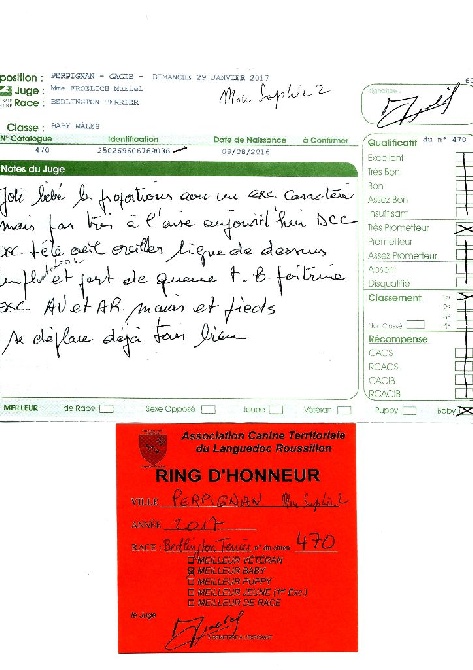 position : PERPIGNAN - CACIB - DIMANCHE 29 JANVIER 2017
Juge : Mme FROELICH Muriel
Race : BEDLINGTON TERRIER
Mon Saphir 2
Classe : BABY MALES
N° Catalogue Identification Date de Naissance à Confirmer
470
Notes du Juge
Joli bébé bs proportions avec un exc caractère
mais pas très à l'aise aujourd'hui DCC
exc tête oeil oreilles ligne de dessus
et port de queue t.B poitrine
exc AV et AR mains et pieds
se déplace déjà très bien
MEILLEUR de Race Sexe Opposé Jeune Vétéran Puppy Baby
Qualificatif du n° 470
Excellent
Très Bon
Bon
Assez Bon
Insuffisant
Très Prometteur
Prometteur
Assez Prometteur
Absent
Disqualifié
Classement
Non Classé
Récompense
CACS
RCACS
CACIB
RCACIB
Association Canine Territoriale
du Languedoc Roussillon
RING D'HONNEUR
VILLE PERPIGNAN Mon Saphir 2
ANNEE 2017
RACE Bedlington Terrier 470
MEILLEUR VETERAN
MEILLEUR BABY
MEILLEUR PUPPY
MEILLEUR JEUNE
MEILLEUR DE RACE
le Juge